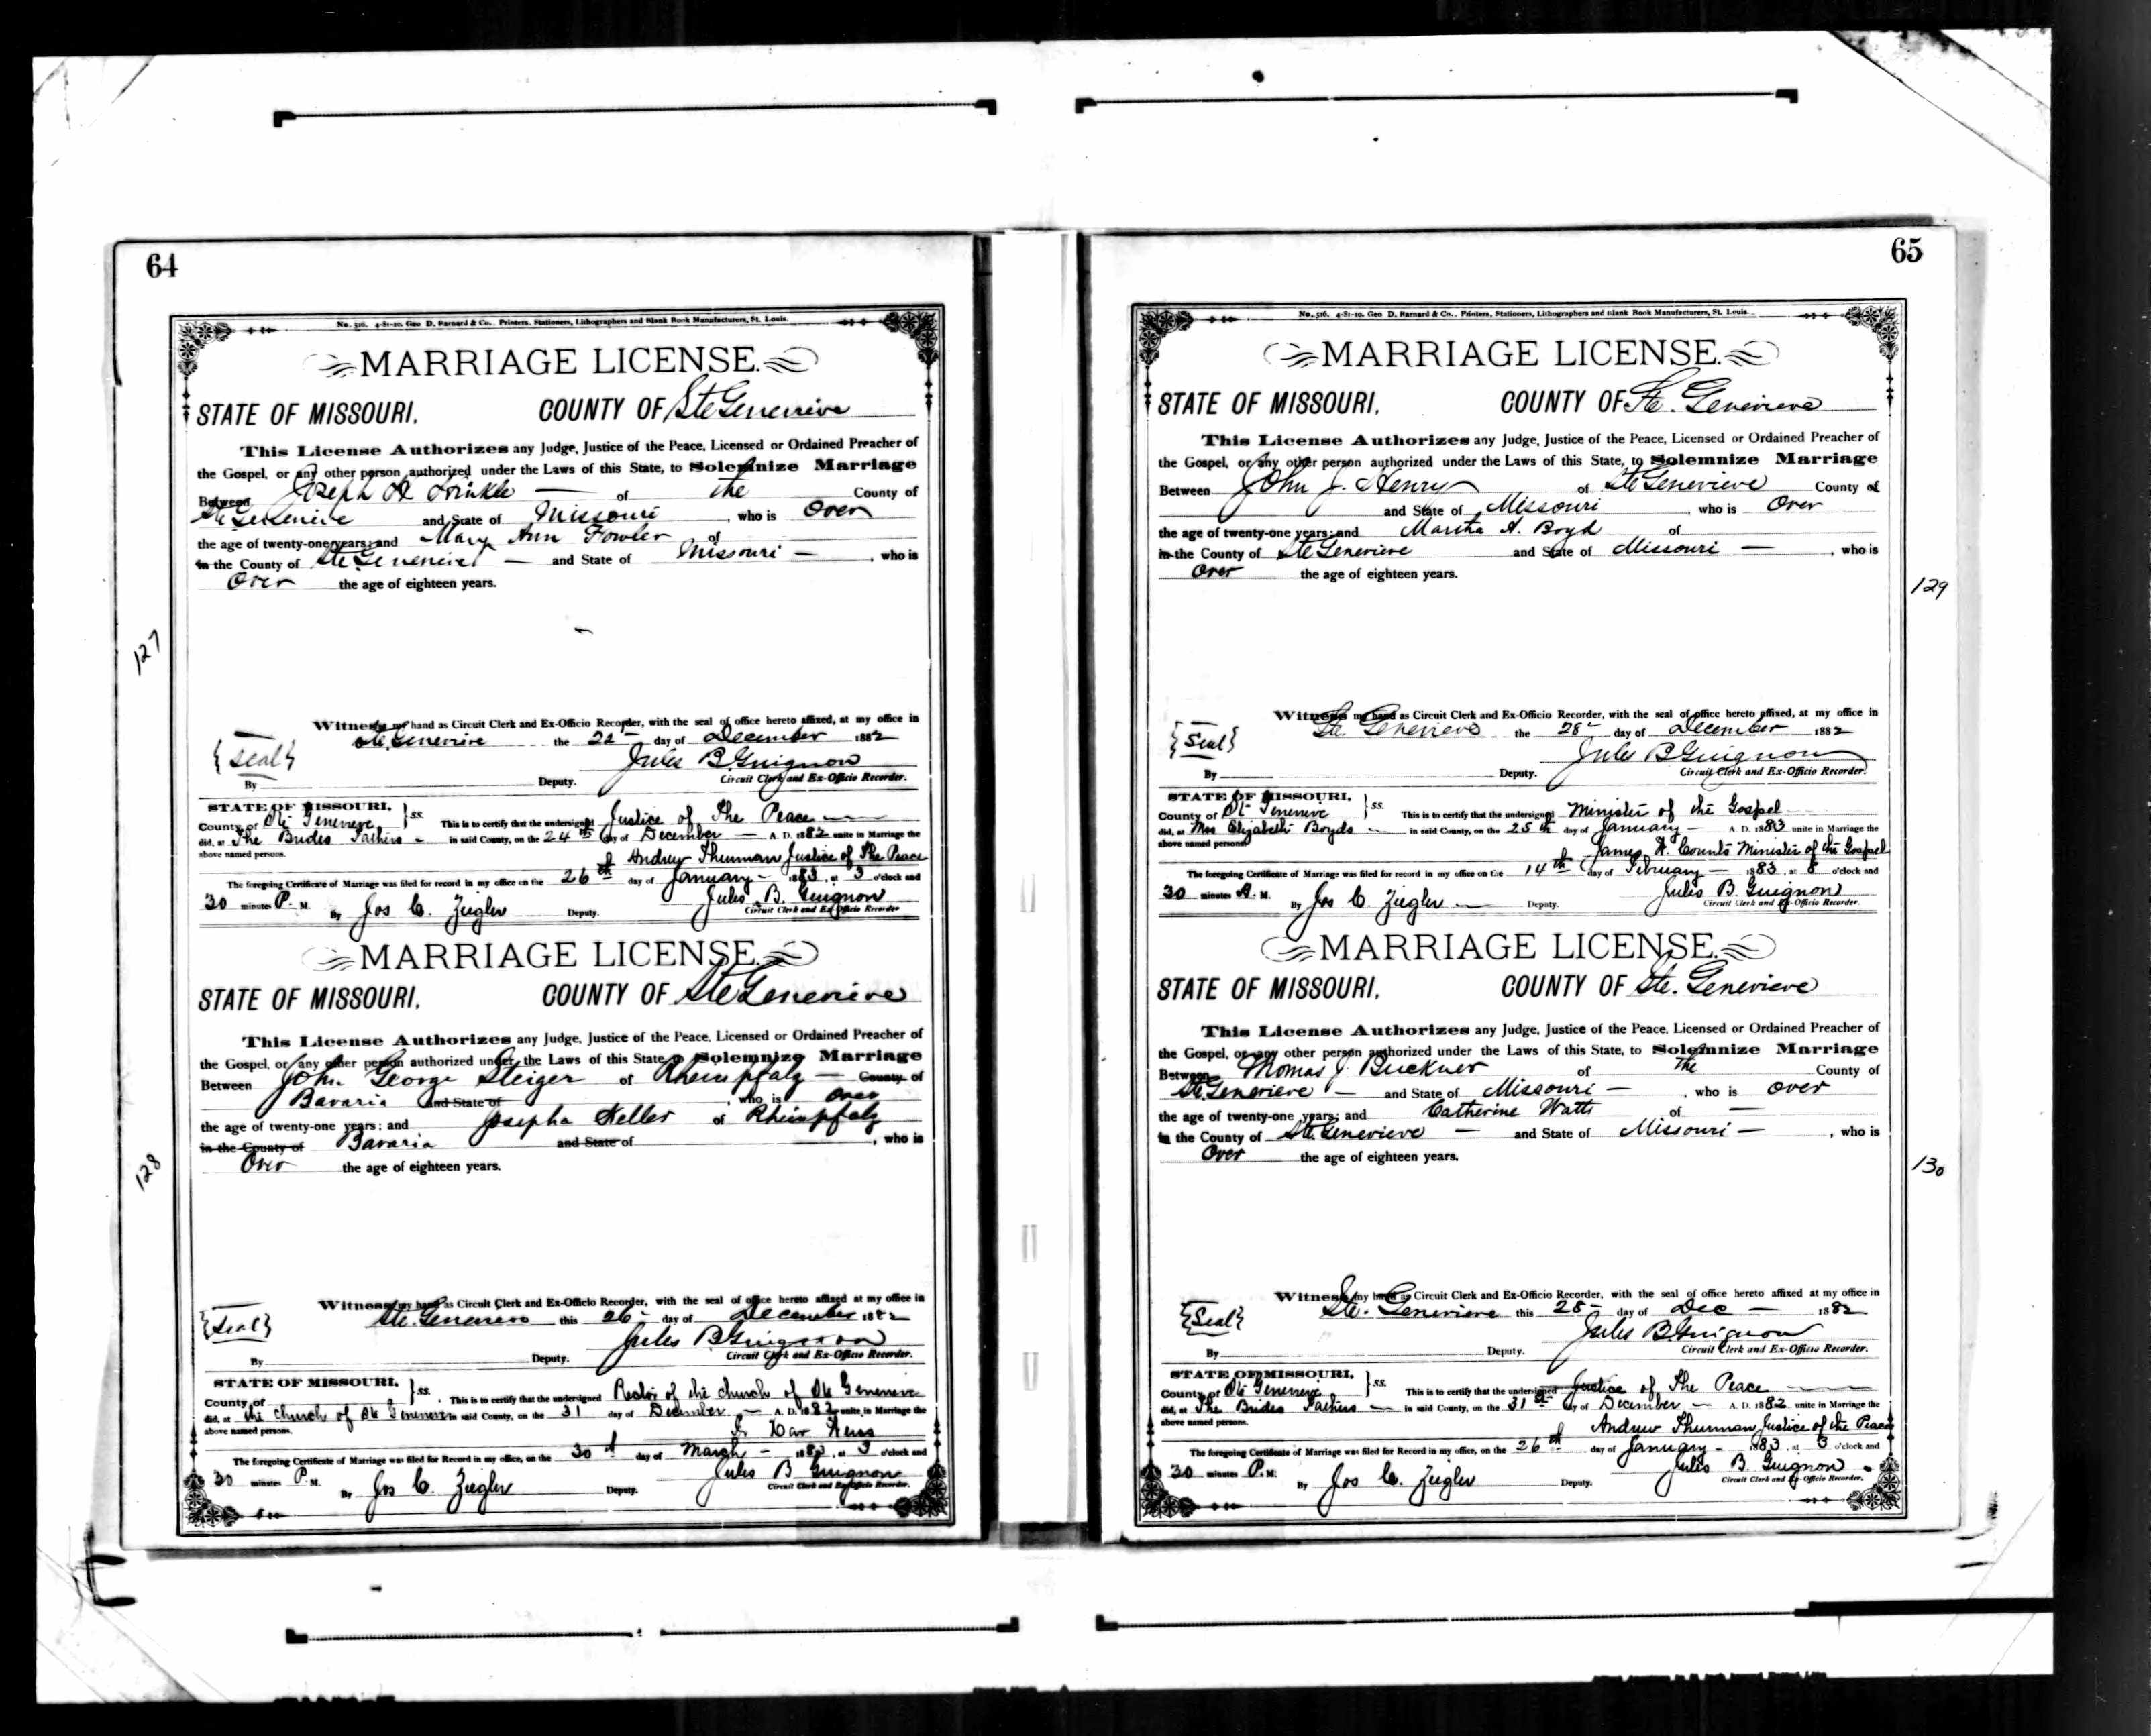 64
No. 516. 4-81-10. Geo D. Barnard & Co., Printers, Stationers, Lithographers and Blank Book Manufacturers, St. Louis.
MARRIAGE LICENSE.
STATE OF MISSOURI. COUNTY OF Ste Genevieve
This License Authorizes any Judge, Justice of the Peace, Licensed or Ordained Preacher of
the Gospel, or any other person authorized under the Laws of this State, to Solemnize Marriage
Between Joseph of the County of
Ste Genevieve and State of Missouri, who is Over
the age of twenty-one years; and Mary Ann Fowler of
in the County of Ste Genevieve — and State of Missouri —, who is
Over the age of eighteen years.
127
Witness my hand as Circuit Clerk and Ex-Officio Recorder, with the seal of office hereto affixed, at my office in
Ste. Genevieve the 22 day of December 1882
{Seal} Jules B. Guignon
By Deputy. Circuit Clerk and Ex-Officio Recorder.
STATE OF MISSOURI, ss.
County of Ste Genevieve This is to certify that the undersigned Justice of The Peace
did, at The Brides Fathers in said County, on the 24th day of December — A. D. 1882 unite in Marriage the
above named persons.
Andrew Thurman Justice of The Peace
The foregoing Certificate of Marriage was filed for record in my office on the 26th day of January — 1883, at 3 o'clock and
30 minutes P. M. By Jos C. Ziegler Deputy. Jules B. Guignon
Circuit Clerk and Ex-Officio Recorder
MARRIAGE LICENSE.
STATE OF MISSOURI. COUNTY OF Ste Genevieve
This License Authorizes any Judge, Justice of the Peace, Licensed or Ordained Preacher of
the Gospel, or any other person authorized under the Laws of this State, to Solemnize Marriage
Between John George Steiger of Rheinpfalz — County of
Bavaria and State of, who is Over
the age of twenty-one years; and Josepha Heller of Rheinpfalz
in the County of Bavaria and State of, who is
Over the age of eighteen years.
128
Witness my hand as Circuit Clerk and Ex-Officio Recorder, with the seal of office hereto affixed at my office in
Ste. Genevieve this 26 day of December 1882
{Seal} Jules B Guignon
By Deputy. Circuit Clerk and Ex-Officio Recorder.
STATE OF MISSOURI, ss.
County of This is to certify that the undersigned Rector of the church of Ste Genevieve
did, at the church of Ste Genevieve in said County, on the 31 day of December — A. D. 1882 unite in Marriage the
above named persons.
The foregoing Certificate of Marriage was filed for Record in my office, on the 30th day of March — 1883, at 3 o'clock and
30 minutes P. M. By Jos C. Ziegler Deputy. Jules B Guignon
Circuit Clerk and Ex-Officio Recorder.
65
No. 516. 4-81-10. Geo D. Barnard & Co., Printers, Stationers, Lithographers and Blank Book Manufacturers, St. Louis.
MARRIAGE LICENSE.
STATE OF MISSOURI. COUNTY OF Ste. Genevieve
This License Authorizes any Judge, Justice of the Peace, Licensed or Ordained Preacher of
the Gospel, or any other person authorized under the Laws of this State, to Solemnize Marriage
Between John J. Henry of Ste Genevieve County of
and State of Missouri, who is Over
the age of twenty-one years; and Martha A. Boyd of
in the County of Ste Genevieve and State of Missouri —, who is
Over the age of eighteen years.
129
Witness my hand as Circuit Clerk and Ex-Officio Recorder, with the seal of office hereto affixed, at my office in
Ste Genevieve the 28 day of December 1882
{Seal} Jules B Guignon
By Deputy. Circuit Clerk and Ex-Officio Recorder.
STATE OF MISSOURI, ss.
County of Ste Genevieve This is to certify that the undersigned Minister of the Gospel
did, at Mrs Elizabeth Boyds in said County, on the 25th day of January — A. D. 1883 unite in Marriage the
above named persons
James H. Counts Minister of the Gospel
The foregoing Certificate of Marriage was filed for record in my office on the 14th day of February — 1883, at 8 o'clock and
30 minutes A. M. By Jos C. Ziegler — Deputy. Jules B. Guignon
Circuit Clerk and Ex-Officio Recorder.
MARRIAGE LICENSE.
STATE OF MISSOURI. COUNTY OF Ste. Genevieve
This License Authorizes any Judge, Justice of the Peace, Licensed or Ordained Preacher of
the Gospel, or any other person authorized under the Laws of this State, to Solemnize Marriage
Between Thomas J. Buckner of The County of
Ste Genevieve — and State of Missouri —, who is over
the age of twenty-one years; and Catherine Watts of —
in the County of Ste. Genevieve — and State of Missouri —, who is
Over the age of eighteen years.
130
Witness my hand as Circuit Clerk and Ex-Officio Recorder, with the seal of office hereto affixed at my office in
Ste. Genevieve this 28 day of Dec — 1882
{Seal} Jules B. Guignon
By Deputy. Circuit Clerk and Ex-Officio Recorder.
STATE OF MISSOURI, ss.
County of Ste Genevieve This is to certify that the undersigned Justice of The Peace
did, at The Brides Fathers — in said County, on the 31st day of December — A. D. 1882 unite in Marriage the
above named persons.
Andrew Thurman Justice of the Peace
The foregoing Certificate of Marriage was filed for Record in my office, on the 26th day of January — 1883, at 3 o'clock and
30 minutes P. M. By Jos C. Ziegler Deputy. Jules B. Guignon
Circuit Clerk and Ex-Officio Recorder.